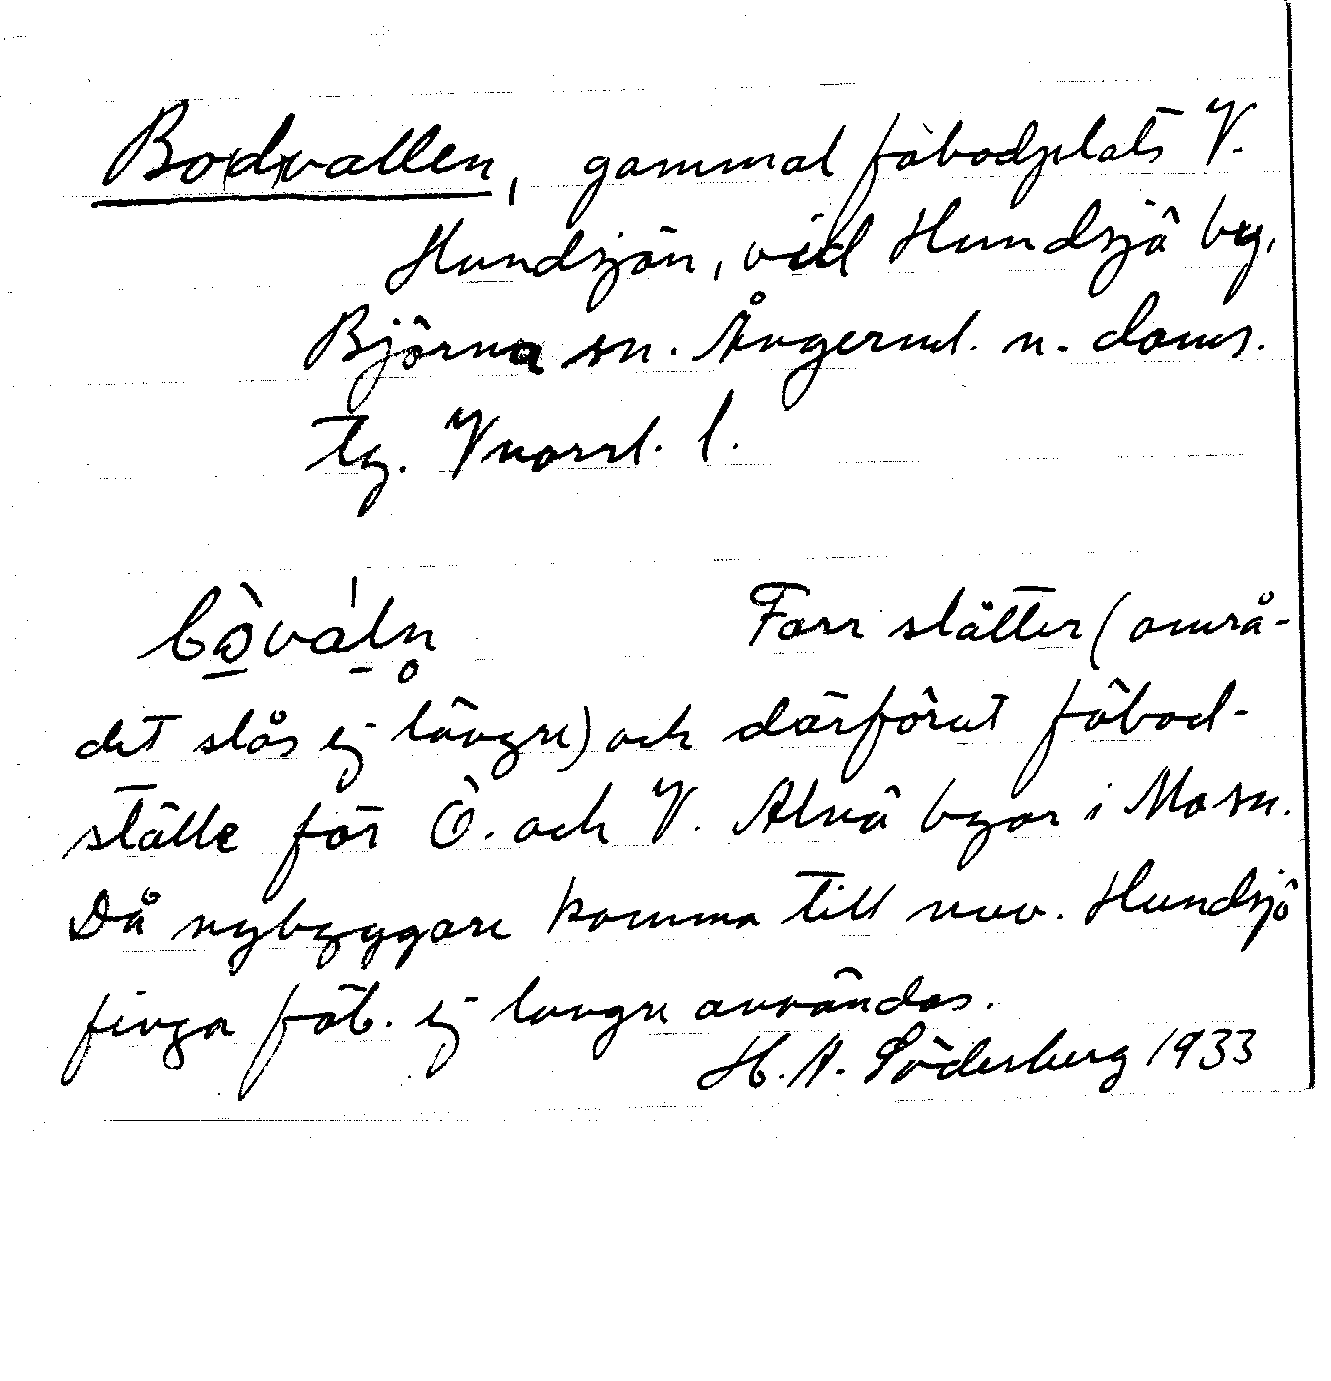 Bodvallen, gammal fäbodplats V.
Hundsjön, vid Hundsjö by,
Björna sn. Ångerml. n. doms.
tg. Vnorrl. l.
bòvàln Förr slätter (områ-
det slås ej längre) och därförut fäbod-
ställe för Ö. och V. Alnä byar i Mo sn.
Då nybyggare komma till nuv. Hundsjö
finga fäb. ej längre användas.
H. A. Söderberg 1933